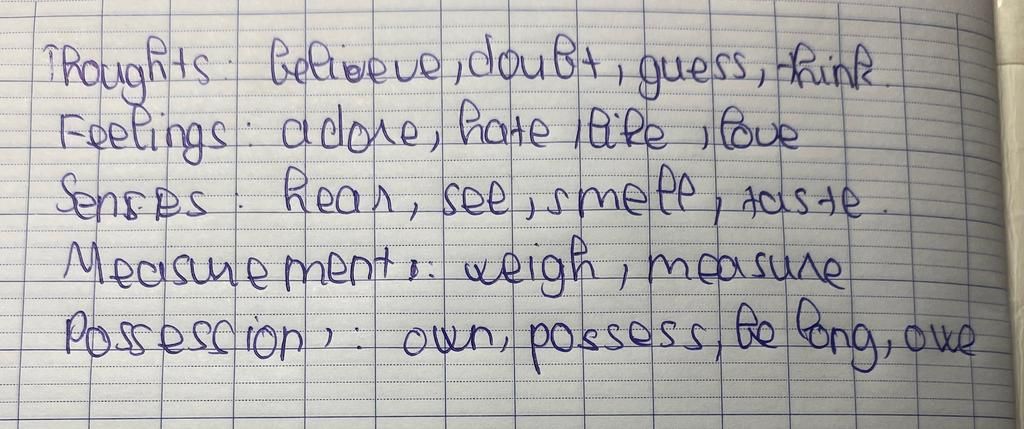 Thoughts: believe, doubt, guess, think.
Feelings: adore, hate, like, love
Senses: hear, see, smell, taste.
Measurement: weigh, measure
Possession: own, possess, belong, owe